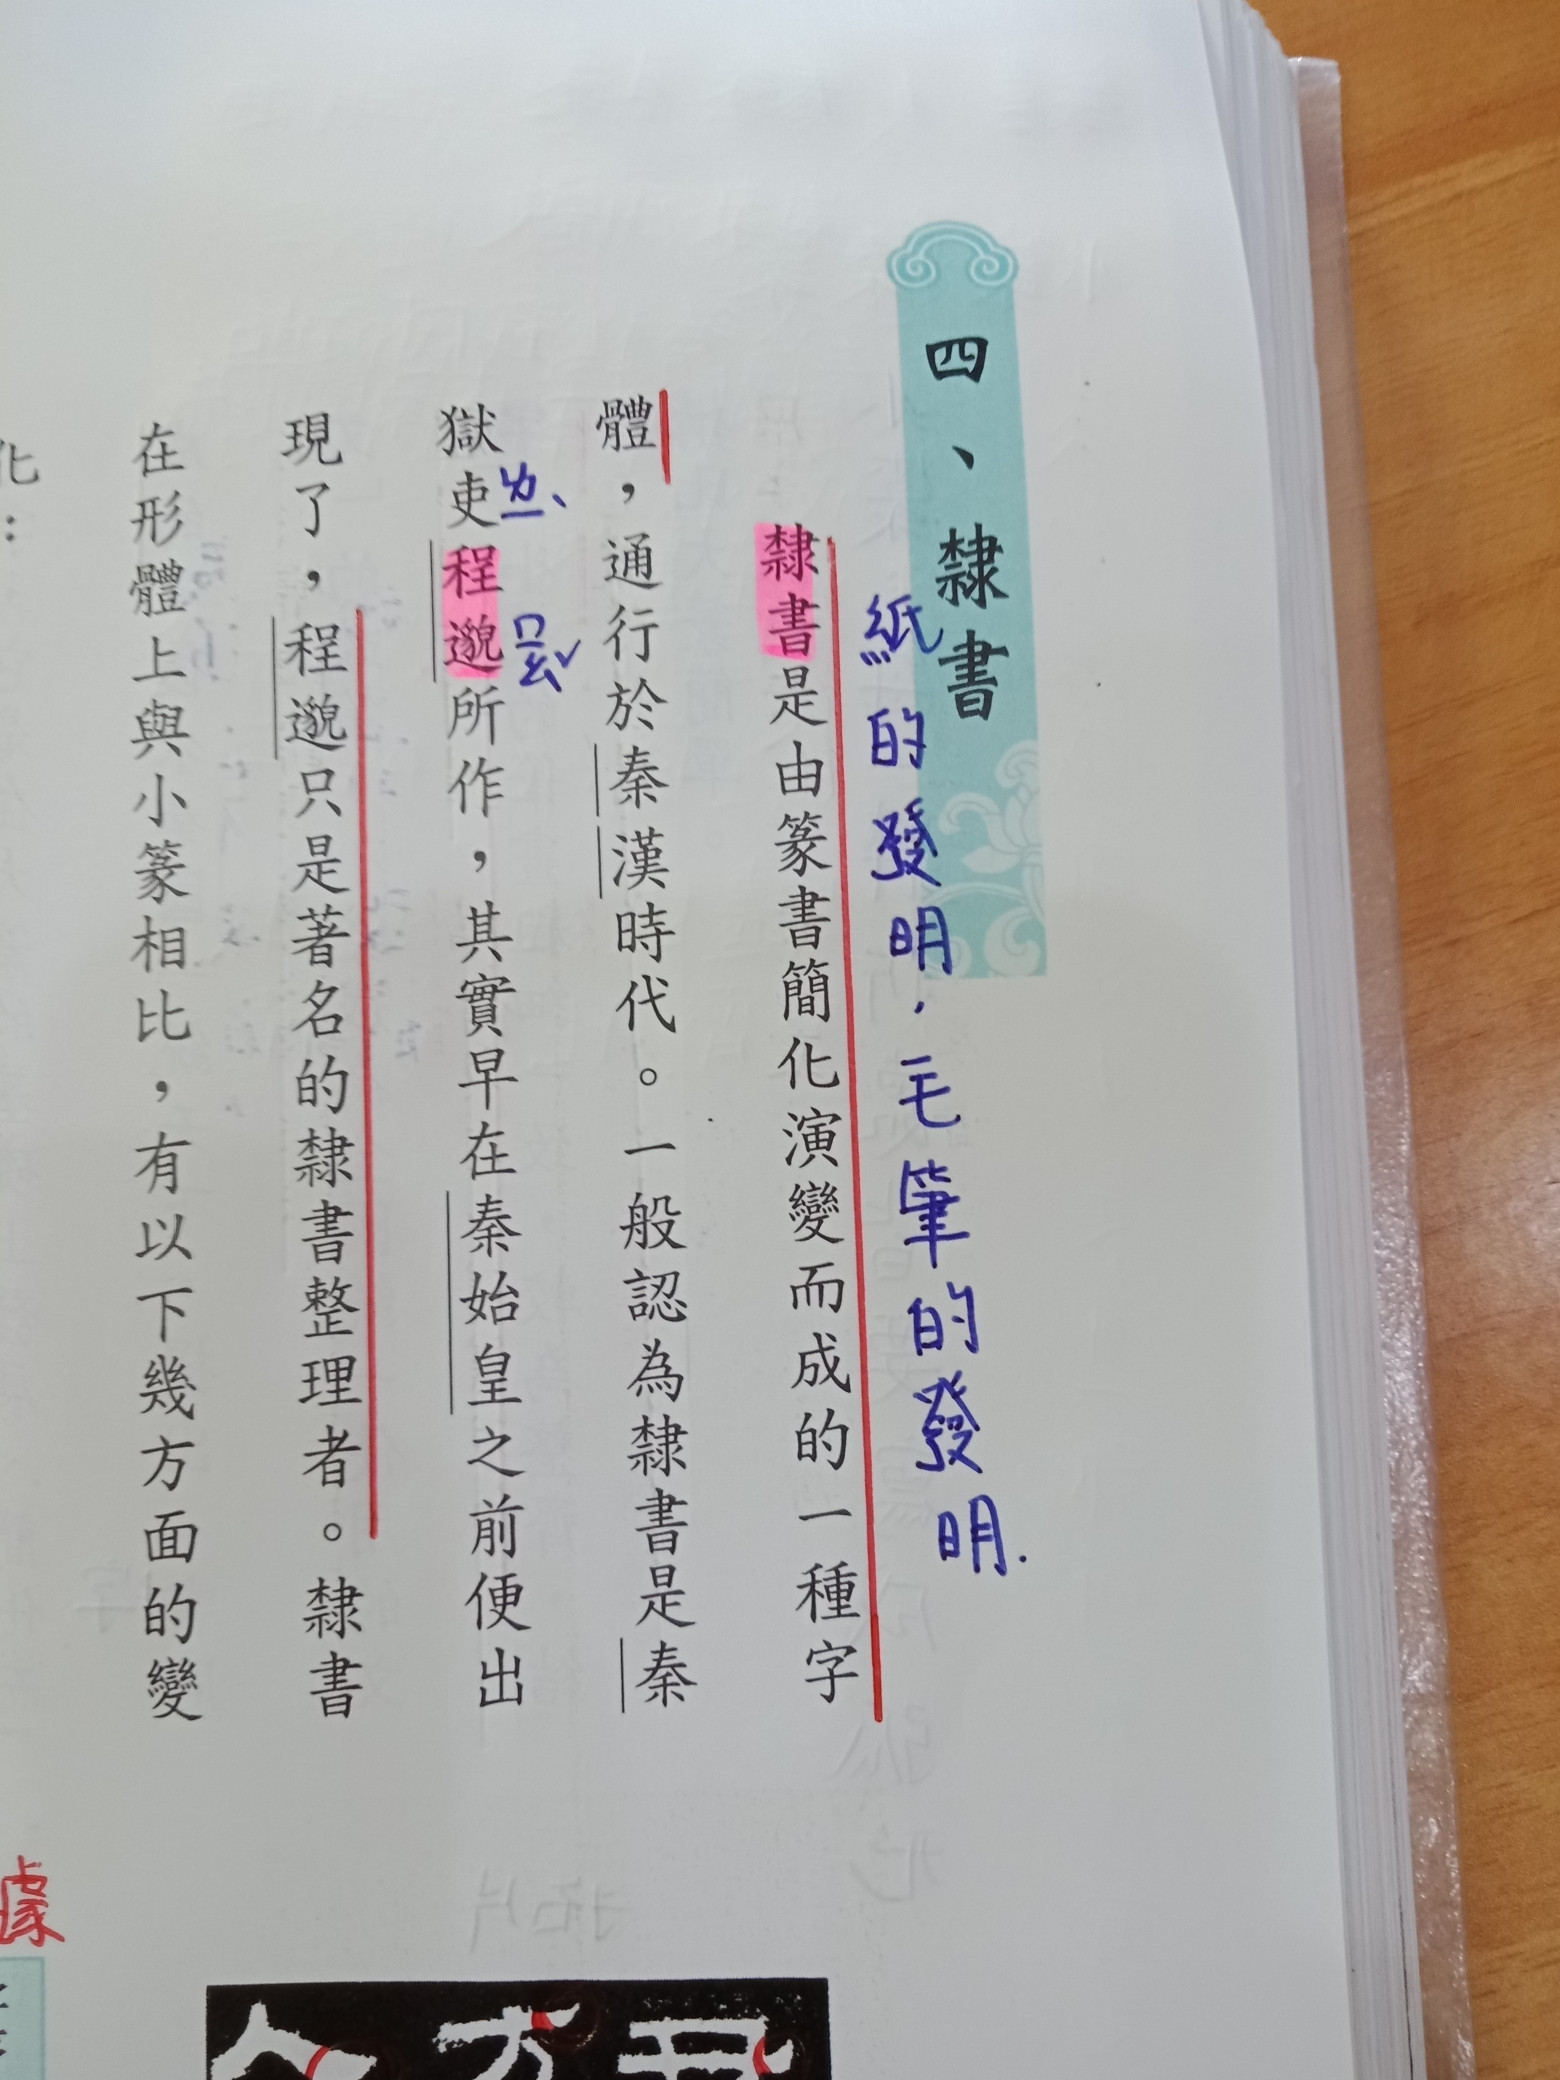 四、隸書
紙的發明，毛筆的發明.
隸書是由篆書簡化演變而成的一種字
體，通行於秦漢時代。一般認為隸書是秦
獄吏程邈所作，其實早在秦始皇之前便出
ㄌㄧˋ
ㄇㄧㄠˇ
現了，程邈只是著名的隸書整理者。隸書
在形體上與小篆相比，有以下幾方面的變
化：
據